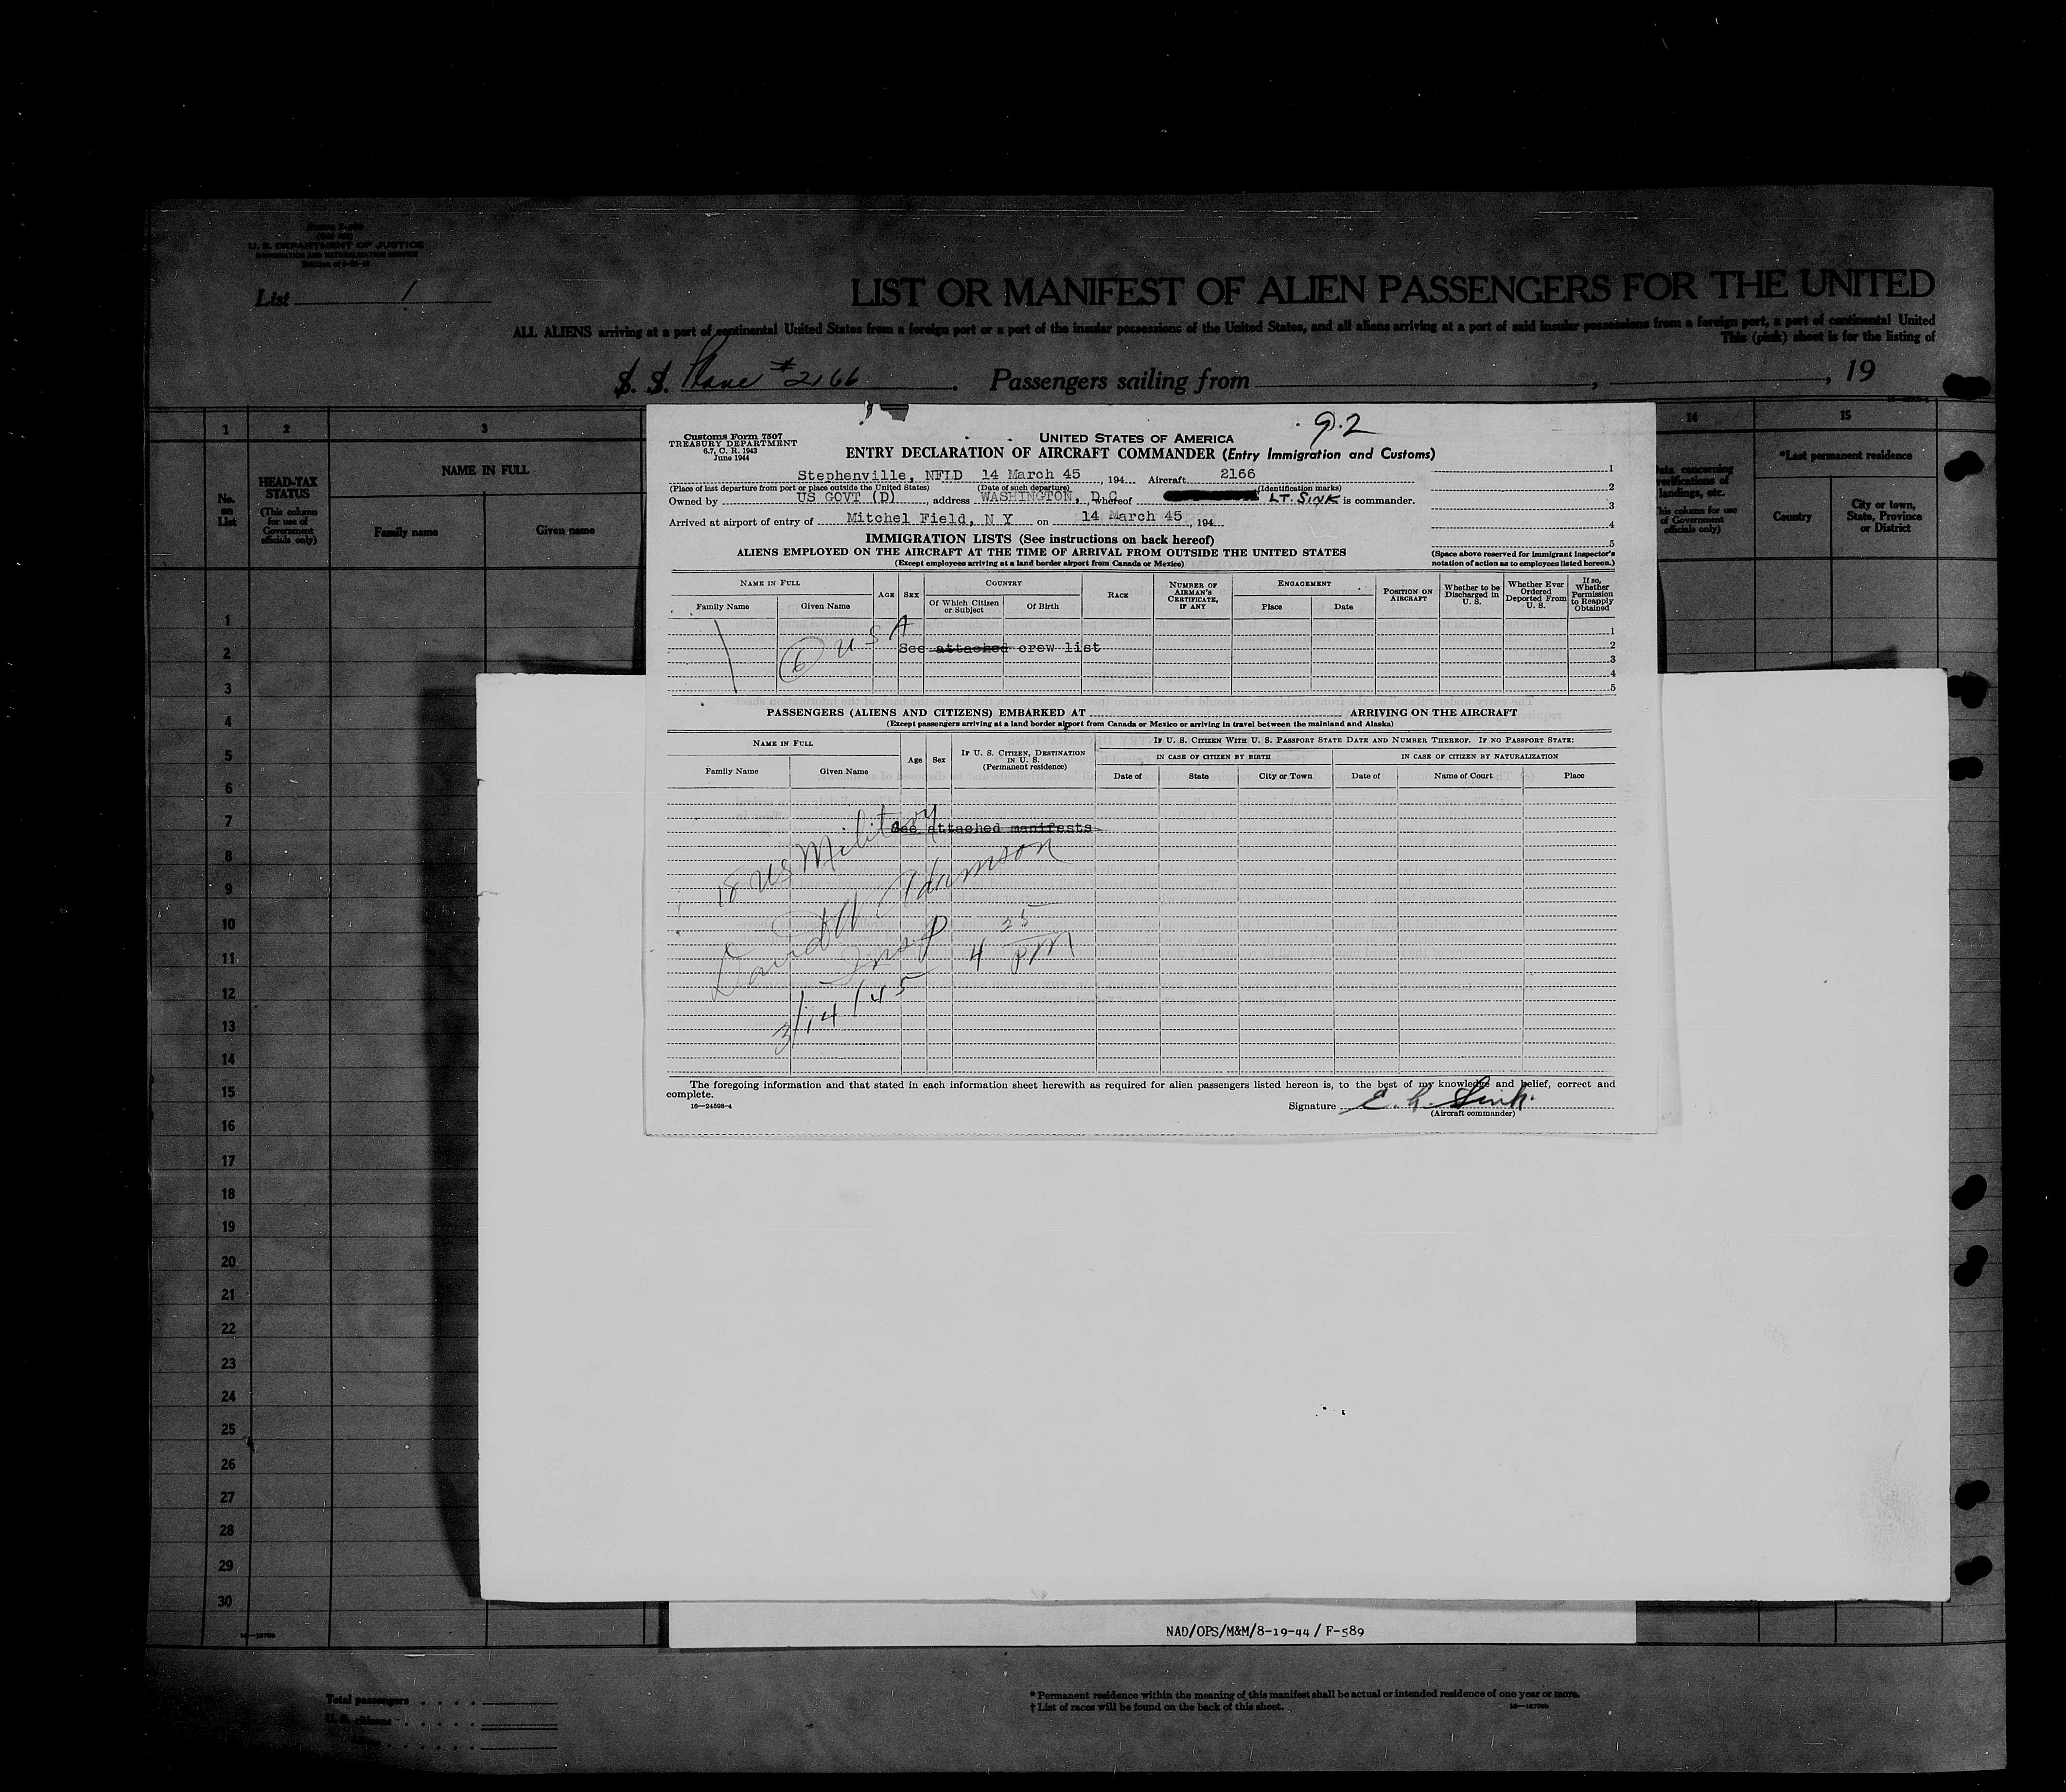 U. S. DEPARTMENT OF JUSTICE
IMMIGRATION AND NATURALIZATION SERVICE
List 1
LIST OR MANIFEST OF ALIEN PASSENGERS FOR THE UNITED
ALL ALIENS arriving at a port of continental United States from a foreign port or a port of the insular possessions of the United States, and all aliens arriving at a port of said insular possessions from a foreign port, a port of continental United
This (pink) sheet is for the listing of
S. S. Plane #2166. Passengers sailing from , , 19
1 2 3 14 15
No. on List
HEAD-TAX STATUS
(This column for use of Government officials only)
NAME IN FULL
Family name Given name
landings, etc.
of Government officials only)
*Last permanent residence
Country
City or town, State, Province or District
1
2
3
4
5
6
7
8
9
10
11
12
13
14
15
16
17
18
19
20
21
22
23
24
25
26
27
28
29
30
9.2
Customs Form 7507
TREASURY DEPARTMENT
6.7, C. R. 1943
June 1944
UNITED STATES OF AMERICA
ENTRY DECLARATION OF AIRCRAFT COMMANDER (Entry Immigration and Customs)
Stephenville, NFLD 14 March 45, 194 Aircraft 2166
(Place of last departure from port or place outside the United States) (Date of such departure) (Identification marks)
Owned by US GOVT (D), address WASHINGTON, D.C., whereof LT. SINK is commander.
Arrived at airport of entry of Mitchel Field, N Y on 14 March 45, 194
1
2
3
4
5
(Space above reserved for immigrant inspector's notation of action as to employees listed hereon.)
IMMIGRATION LISTS (See instructions on back hereof)
ALIENS EMPLOYED ON THE AIRCRAFT AT THE TIME OF ARRIVAL FROM OUTSIDE THE UNITED STATES
(Except employees arriving at a land border airport from Canada or Mexico)
NAME IN FULL
Family Name Given Name
AGE SEX
COUNTRY
Of Which Citizen or Subject Of Birth
RACE
NUMBER OF AIRMAN'S CERTIFICATE, IF ANY
ENGAGEMENT
Place Date
POSITION ON AIRCRAFT
Whether to be Discharged in U. S.
Whether Ever Ordered Deported From U. S.
If so, Whether Permission to Reapply Obtained
6 USA
See attached crew list
1
2
3
4
5
PASSENGERS (ALIENS AND CITIZENS) EMBARKED AT ARRIVING ON THE AIRCRAFT
(Except passengers arriving at a land border airport from Canada or Mexico or arriving in travel between the mainland and Alaska)
NAME IN FULL
Family Name Given Name
Age Sex
IF U. S. CITIZEN, DESTINATION IN U. S.
(Permanent residence)
IF U. S. CITIZEN WITH U. S. PASSPORT STATE DATE AND NUMBER THEREOF. IF NO PASSPORT STATE:
IN CASE OF CITIZEN BY BIRTH
IN CASE OF CITIZEN BY NATURALIZATION
Date of State City or Town Date of Name of Court Place
See attached manifests
18 US Military
David W Adamson
Insp 4 25 PM
3/14/45
The foregoing information and that stated in each information sheet herewith as required for alien passengers listed hereon is, to the best of my knowledge and belief, correct and
complete.
16—24598-4
Signature E. Sink
(Aircraft commander)
NAD/OPS/M&M/8-19-44 / F-589
Total passengers
U. S. citizens
* Permanent residence within the meaning of this manifest shall be actual or intended residence of one year or more.
† List of races will be found on the back of this sheet.